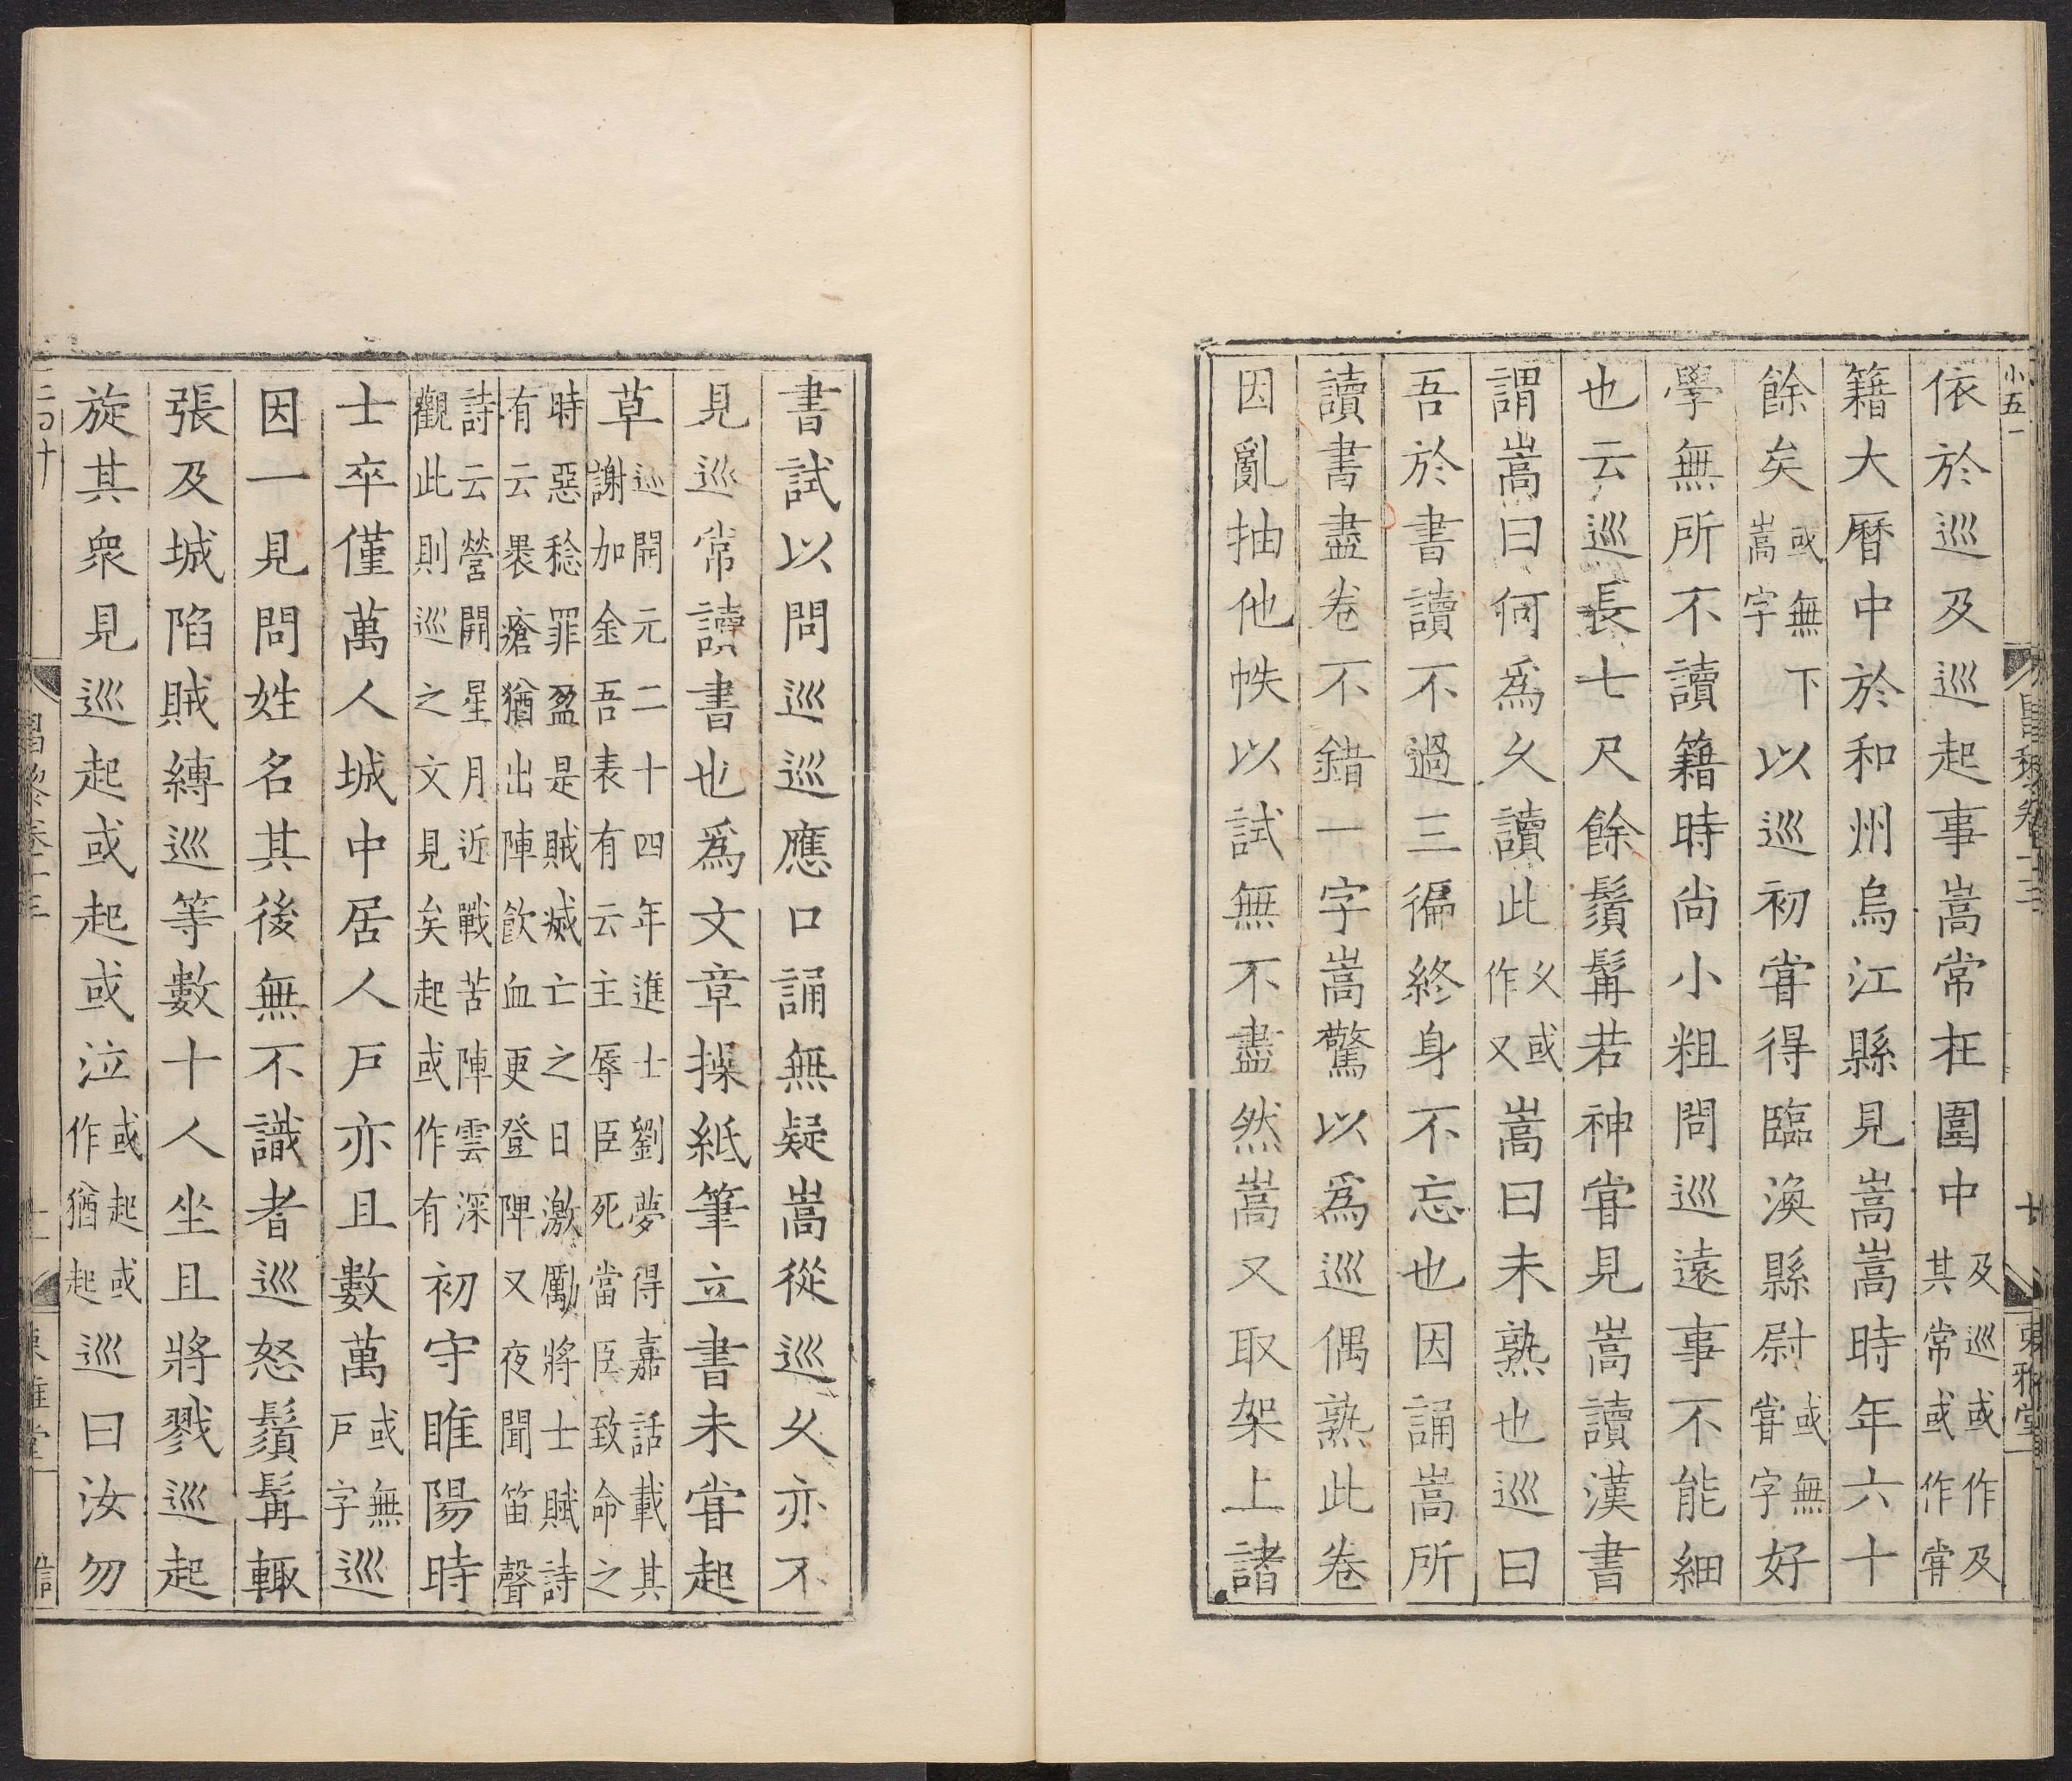 小五一
昌黎卷十三
東雅堂
依於巡及巡起事嵩常在圍中及巡或作及其常或作甞
籍大曆中於和州烏江縣見嵩嵩時年六十
餘矣或無嵩字下以巡初甞得臨渙縣尉或無甞字好
學無所不讀籍時尚小粗問巡遠事不能細
也云巡長七尺餘鬚髯若神甞見嵩讀漢書
謂嵩曰何爲久讀此久或作又嵩曰未熟也巡曰
吾於書讀不過三徧終身不忘也因誦嵩所
讀書盡卷不錯一字嵩驚以爲巡偶熟此卷
因亂抽他帙以試無不盡然嵩又取架上諸
書試以問巡巡應口誦無疑嵩從巡久亦不
見巡常讀書也爲文章操紙筆立書未甞起
草巡開元二十四年進士劉夢得嘉話載其謝加金吾表有云主辱臣死當臣致命之
時惡稔罪盈是賊滅亡之日激勵將士賦詩有云褁瘡猶出陣飲血更登陴又夜聞笛聲
詩云營開星月近戰苦陣雲深觀此則巡之文見矣起或作有初守睢陽時
士卒僅萬人城中居人戶亦且數萬或無戶字巡
因一見問姓名其後無不識者巡怒鬚髯輒
張及城陷賊縛巡等數十人坐且將戮巡起
旋其衆見巡起或起或泣或起或作猶起巡曰汝勿
昌黎卷十三
東雅堂